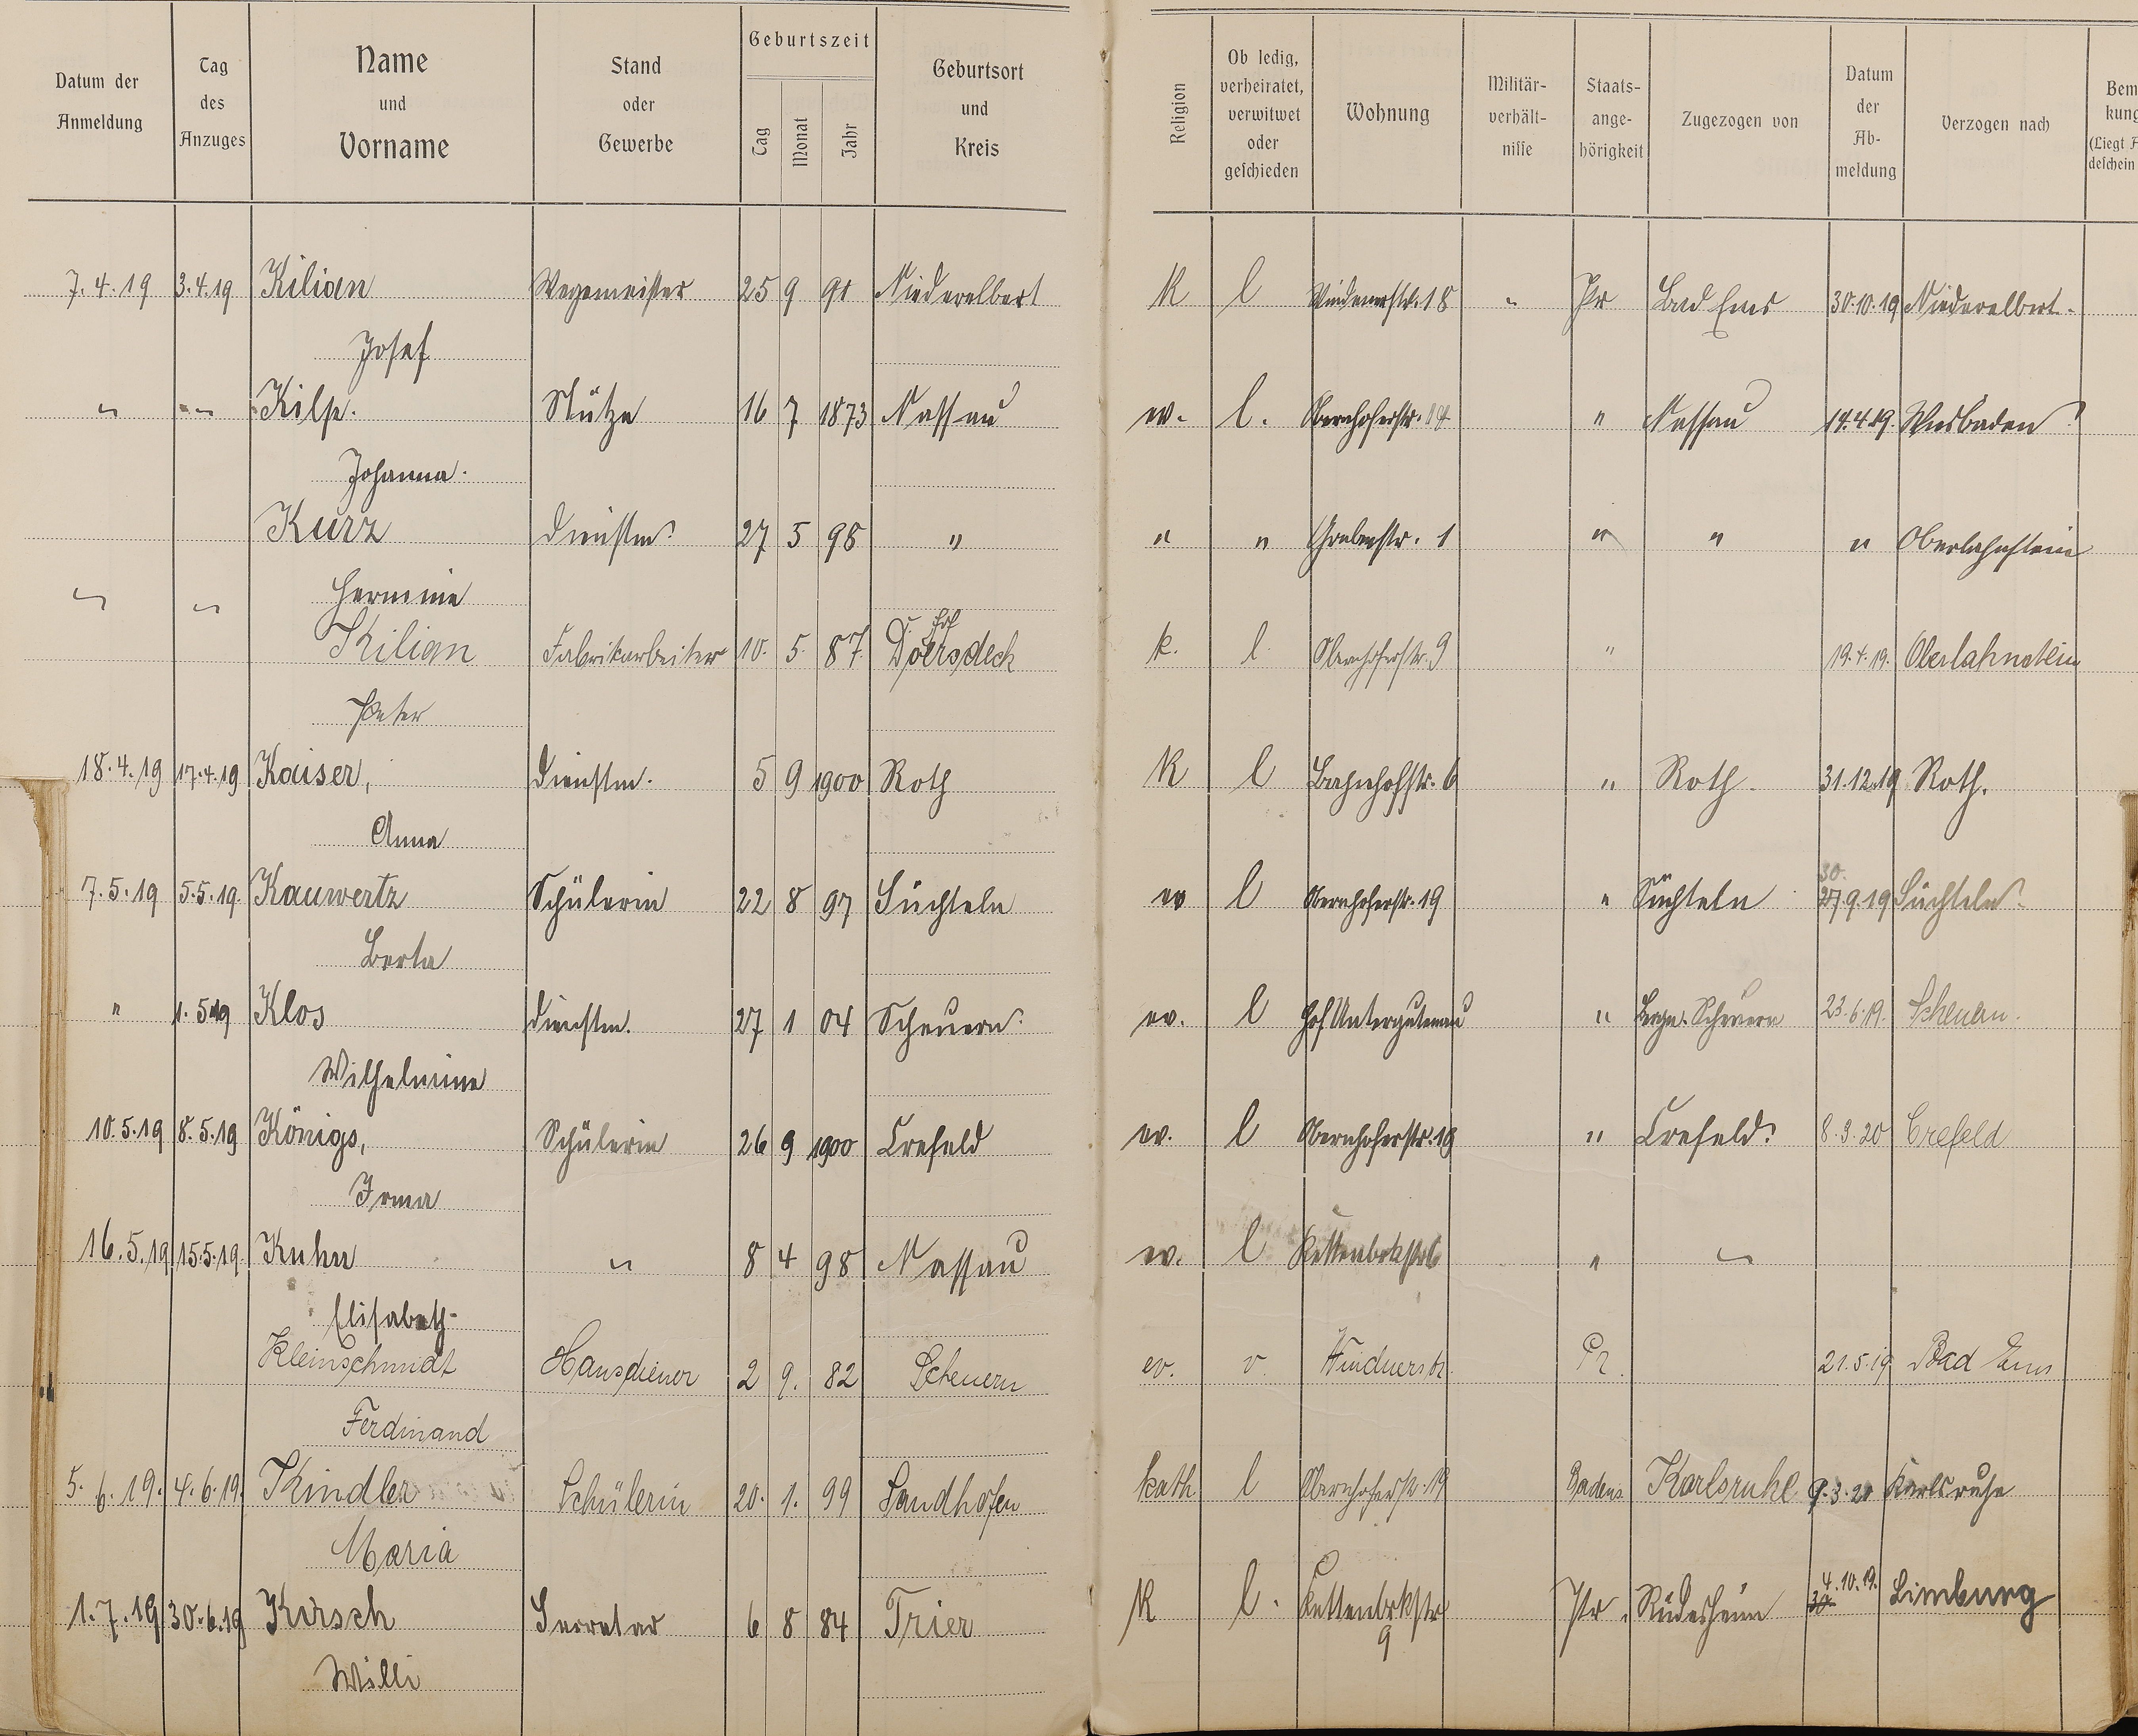 Datum der Anmeldung | Tag des Anzuges | Name und Vorname | Stand oder Gewerbe | Geburtszeit Tag Monat Jahr | Geburtsort und Kreis | Religion | Ob ledig, verheiratet, verwitwet oder geschieden | Wohnung | Militär-verhält-nisse | Staats-ange-hörigkeit | Zugezogen von | Datum der Ab-meldung | Verzogen nach | Bem kung (Liegt deschein
7.4.19 3.4.19 Kilian Wegemeister 25 9 91 Niederelbert K l Windenerstr. 18 " Pr Bad Ems 30.10.19 Niederelbert.
Josef
" " Kilp. Stütze 16 7 1873 Nassau ev. l. Obernhoferstr. " Nassau 14.4.19. Wiesbaden
Johanna.
Kurz Dienstm. 27 5 98 " " " Grabenstr. 1 " " " Oberlahnstein
" " Hermine
Kilian Fabrikarbeiter 10. 5. 87. k. l. Obernhoferstr. 9 " 19.4.19. Oberlahnstein
Peter
18.4.19 17.4.19 Kaiser, Dienstm. 5 9 1900 Roth K l Bahnhofstr. 6 " Roth. 31.12.19 Roth.
Anna
30.
7.5.19 5.5.19. Kauwertz Schülerin 22 8 97 Süchteln ev l Obernhoferstr. 19 " Süchteln 27.9.19 Süchteln.
Berta
" 1.5.19 Klos Dienstm. 27 1 04 Scheuern. ev. l Hof Untergutenau " Bergn. Scheuern 23.6.19. Scheuern.
Wilhelmine
10.5.19 8.5.19 Königs, Schülerin 26 9 1900 Crefeld ev. l Obernhoferstr. 19 " Crefeld. 8.3.20 Crefeld
Irma
16.5.19 15.5.19. Kuhn " 8 4 98 Nassau ev. l Kettenbrkstr 6 " "
Elisabeth
Kleinschmidt Hausdiener 2 9. 82 Scheuern ev. v. Windnerstr. Pr. 21.5.19 Bad Ems
Ferdinand
5.6.19. 4.6.19. Kindler Schülerin 20. 1. 99 Sandhofen kath l Obernhoferstr. 19 Badens Karlsruhe 9.3.20 Karlsruhe
Maria
4.10.19.
1.7.19 30.6.19 Kirsch Secretar 6 8 84 Trier K l. Kettenbrkstr Pr. Rüdesheim 30 Limburg
9
Willi